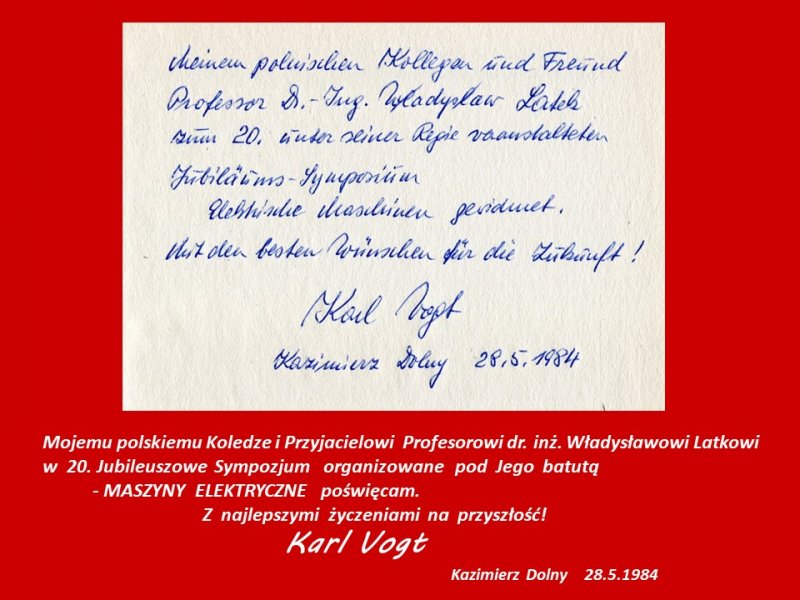 Meinem polnischen Kollegen und Freund
Professor Dr.-Ing. Władysław Latek
zum 20. unter seiner Regie veranstalteten
Jubiläums-Symposium
Elektrische Maschinen gewidmet.
Mit den besten Wünschen für die Zukunft!
Karl Vogt
Kazimierz Dolny 28.5.1984
Mojemu polskiemu Koledze i Przyjacielowi Profesorowi dr. inż. Władysławowi Latkowi
w 20. Jubileuszowe Sympozjum organizowane pod Jego batutą
- MASZYNY ELEKTRYCZNE poświęcam.
Z najlepszymi życzeniami na przyszłość!
Karl Vogt
Kazimierz Dolny 28.5.1984